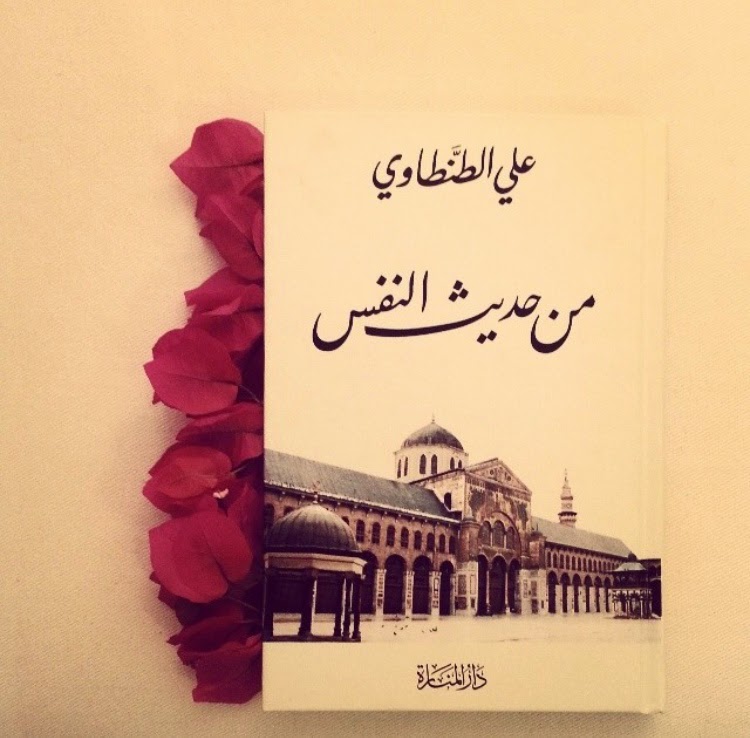 علي الطنَّطاوي
من حديث النفس
دَارُ المَنَارَة